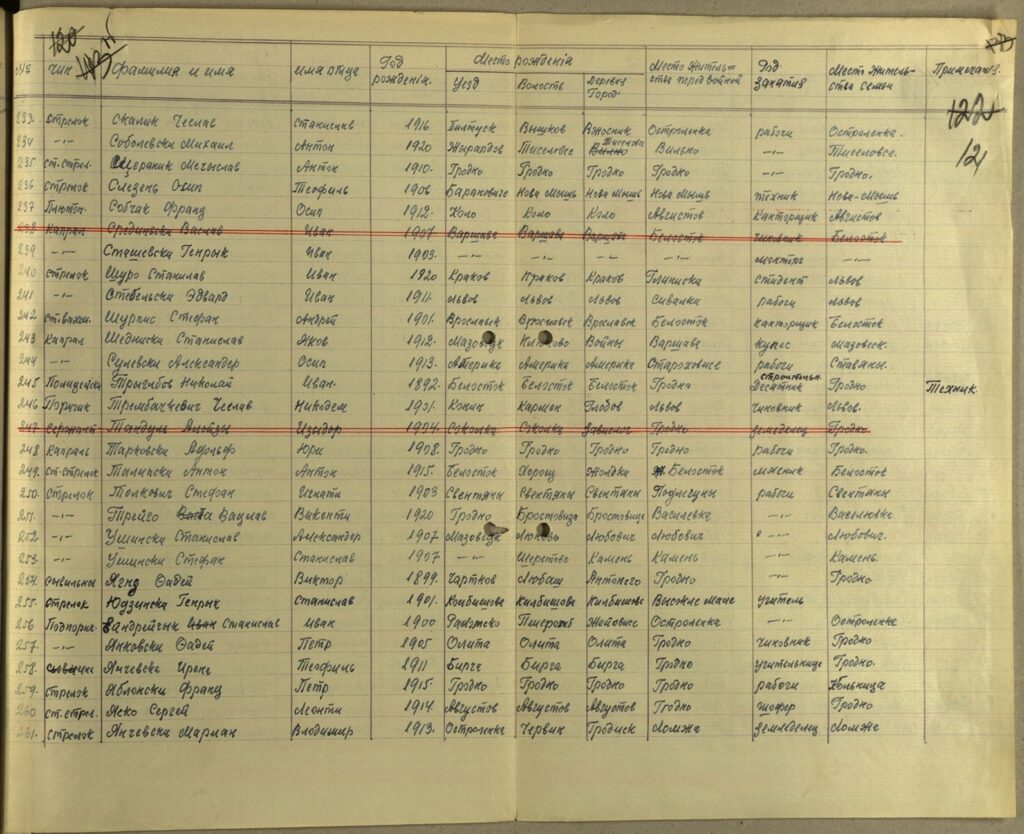 120
№ чин фамилия и имя имя отца Год рожденiя. Место рожденiя Место житель= ства перед войной Род занятия Место житель- ства семьи Примечанiя.
Уезд Волость Деревня Город.
122
12
233. Стрелок Скалик Чеслав Станислав 1916 Пултуск Вышков Остроленка рабочи Остроленка.
234 -"- Соболевски Михаил Антон 1920 Жырардов Вильно -"-
235 ст. стрел. Мечыслав Антон 1910. Гродно Гродно Гродно Гродно. -"- Гродно.
236 стрелок Слезень Осип Теофиль 1906 Барановиче Нова Мышь Нова Мышь Нова Мышь техник Нова-Мышь
237 Плютон. Собчак Франц Осип 1912. Коло Коло Коло Августов Канторщик Августов
238 Капрал Срединьски Васлав Иван 1907 Варшава Варшава Варшава Белосток чиновник Белосток
239 -"- Сташевски Генрык Иван 1903. -"- -"- -"- -"- монтёр -"-
240 стрелок Щуро Станилав Иван 1920 Краков Краков Краков Глиниски студент Львов
241 -"- Стебельски Эдвард Иван 1911. Львов Львов Львов Сувалки рабочи Львов
242 Шурпис Стефан Андрей 1901. Врославок Белосток канторщик Белосток
243 Капрал Шедниски Станислав Яков 1912. Мазовецк Клюково Войны Варшава купес Мазовеск.
244 -"- Сулевски Александер Осип 1913. Америка Америка Америка Староховице рабочи Ставяны.
245 Полицейск Трыгубов Николай Иван. 1892. Белосток Белосток Белосток Гродно строительн. Десятник Гродно Техник
246 Поручик Трембачкевич Чеслав Никодем 1901. Конин Кармен Глобов Львов чиновник Львов.
247 Сержант Тандуль Алойзы Изыдор 1904. Соколка Соколка Гродно земеделец Гродно
248 Капраль Тарковски Адольф Юри 1908. Гродно Гродно Гродно Гродно рабочи Гродно.
249. ст. стрелок Талипски Антон Антон 1915. Белосток Хорощ Жолдка Белосток мясник Белосток
250. Стрелок Толкович Стефан Игнати 1903 Свентяны Свентяны Свентяны Подлегуны рабочи Свентяны
251. -"- Трейго Вацлав Викенти 1920 Гродно Бростовица Бростовица Василевка -"- Василювка
252 -"- Ушински Станислав Александер 1907 Мазовецк Любович Любович -"- Любович.
253. -"- Ушински Стефан Станислав 1907 -"- Шерстово Камень Камень -"- Камень.
254. Ягнд Фадей Виктор 1899. Чартков Любаш Антонего Гродно -"- Гродно
255. стрелок Юдзински Генрых Станислав 1901. Колбишова Килбишове Килбишове Высоке Мазе учитель
256 Подпорич. Яндрейчык Иван Станислав Иван 1900 Остроленка -"- Остроленка
257. -"- Янковски Фадей Петр 1905 Олита Олита Олита Гродно чиновник Гродно
258. Янчевска Ирена Теофиль 1911 Бирга Бирга Бирга Гродно учительница Гродно.
259. стрелок Яблонски Франц Петр 1915. Гродно Гродно Гродно Гродно рабочи
260 ст. стрел. Яско Сергей Леонти 1914 Августов Августов Августов Гродно шофер Гродно
261. стрелок Янчевски Мариан Владимир 1913. Остроленка Червин Гродиск Ломжа земледелец Ломжа